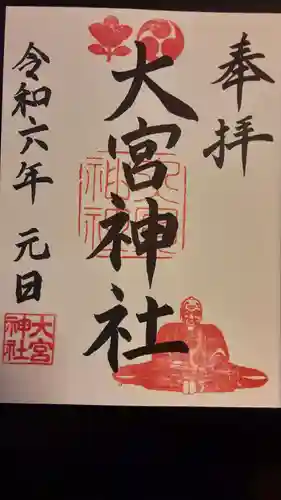 奉拝
大宮神社
令和六年 元日
大宮神社